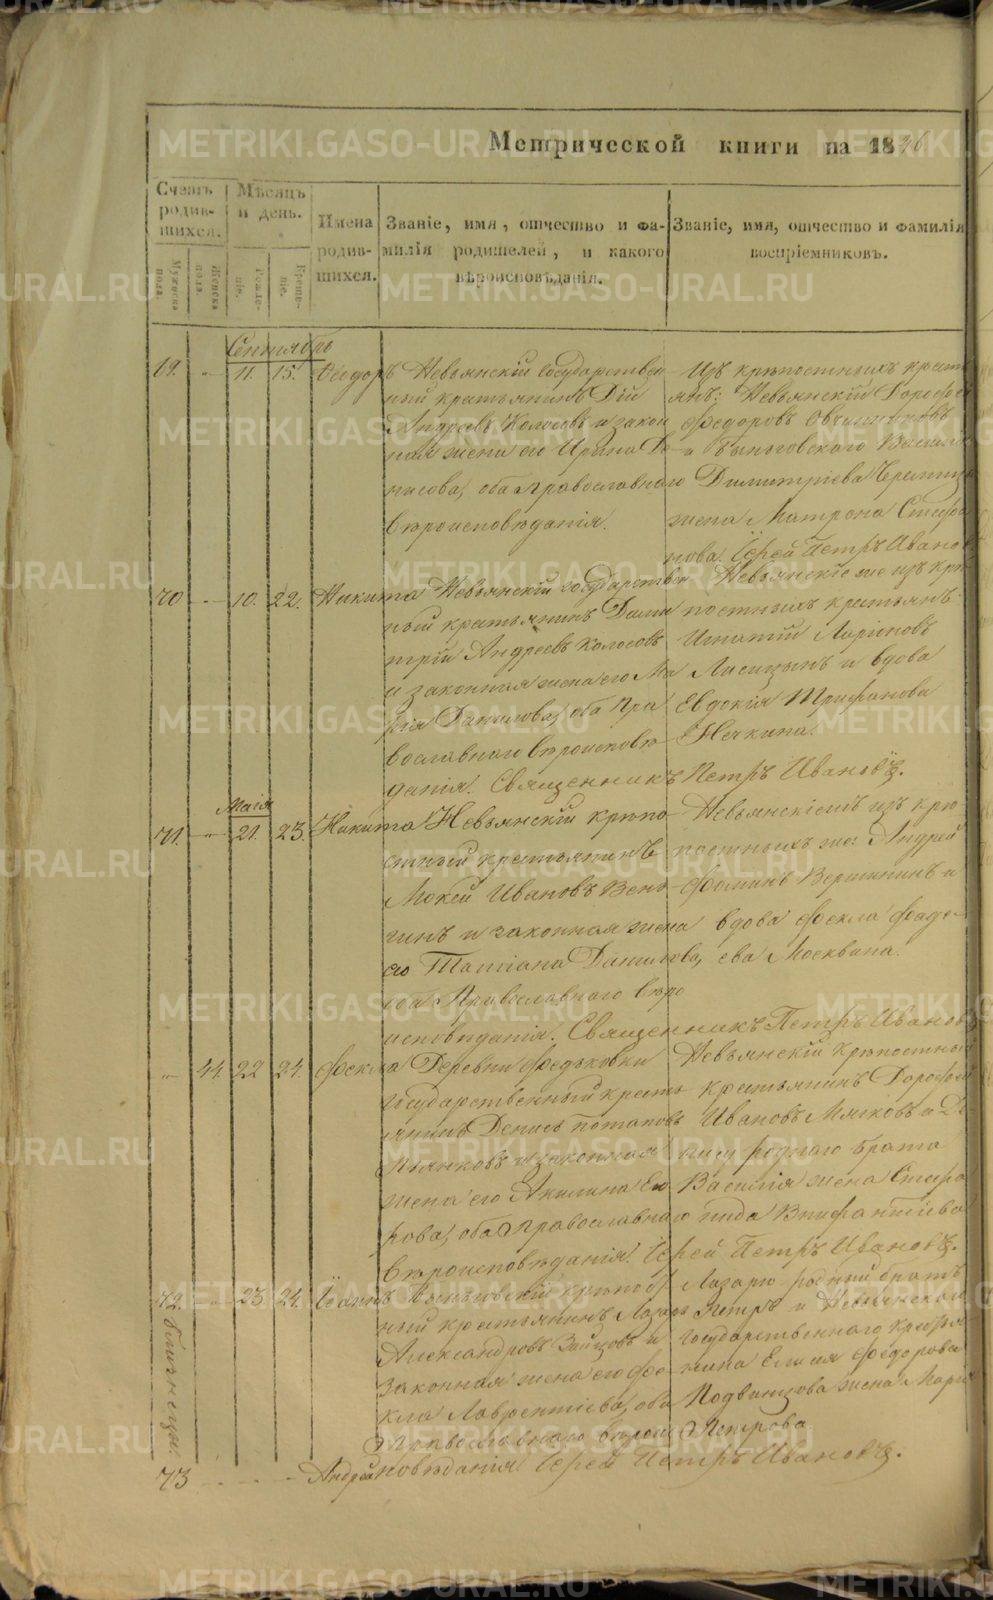 METRIKI.GASO-URAL.RU
Метрической книги на 1836
Счетъ родившихся.
Мужеска пола.
Женска пола.
Мѣсяцъ и день.
Рожденіе.
Крещеніе.
Имена родившихся.
Званіе, имя, отчество и фамилія родителей, и какого вѣроисповѣданія.
Званіе, имя, отчество и фамилія воспріемниковъ.
Сентябрь
69. 11. 15. Ѳеодоръ Невьянскій государствен
ный крестьянинъ
Андреевъ Колосовъ и закон
ная жена его Ирина Де
нисова, оба православнаго
вѣроисповѣданія.
Изъ крѣпостныхъ кресть
янъ: Невьянскій Дорофей
Федоровъ Овчинниковъ
и Быньговскаго Василія
Димитріева
жена Матрона Стефа
нова. Іерей Петръ Ивановъ
70 10. 22. Никита Невьянскій государствен
ный крестьянинъ Дими
трій Андреевъ Колосовъ
и законная жена его Ма
рія Данилова, оба пра
вославнаго вѣроисповѣ
данія. Священникъ Петръ Ивановъ.
Невьянскіе же изъ крѣ
постныхъ крестьянъ:
Игнатій Ларіоновъ
Лисицынъ и вдова
Евдокія Трифанова
Нечкина.
Маія
71. 21. 23. Никита Невьянскій крѣпо
стный крестьянинъ
Мокей Ивановъ
гинъ и законная жена
его Татіана Данилова,
оба Православнаго вѣро
исповѣданія. Священникъ Петръ Ивановъ
Невьянскіежъ изъ крѣ
постныхъ же: Андрей
Фоминъ Вершининъ и
вдова Фекла Фаде-
ева Москвина.
44. 22 24. Фекла Деревни Федьковки
государственный кресть
янинъ Денисъ Потаповъ
Пьянковъ и законная
жена его Акилина Его
рова, оба Православнаго
вѣроисповѣданія. Іерей Петръ Ивановъ.
Невьянскій крѣпостный
крестьянинъ Дорофей
Ивановъ Мягковъ и
роднаго брата
Василія жена Степа
нида
72. 23 24. Іоаннъ крѣпост
ный крестьянинъ Лазарь
Александровъ Зайцовъ и
законная жена его Фе
кла Лаврентіева, оба
Православнаго вѣроис
повѣданія Іерей Петръ Ивановъ.
Лазарю родный братъ
Петръ и Невьянскаго
государственнаго крестья
нина Елисея Федорова
Подвинцова жена Мари
Петрова
Близнецы.
73 Андрей